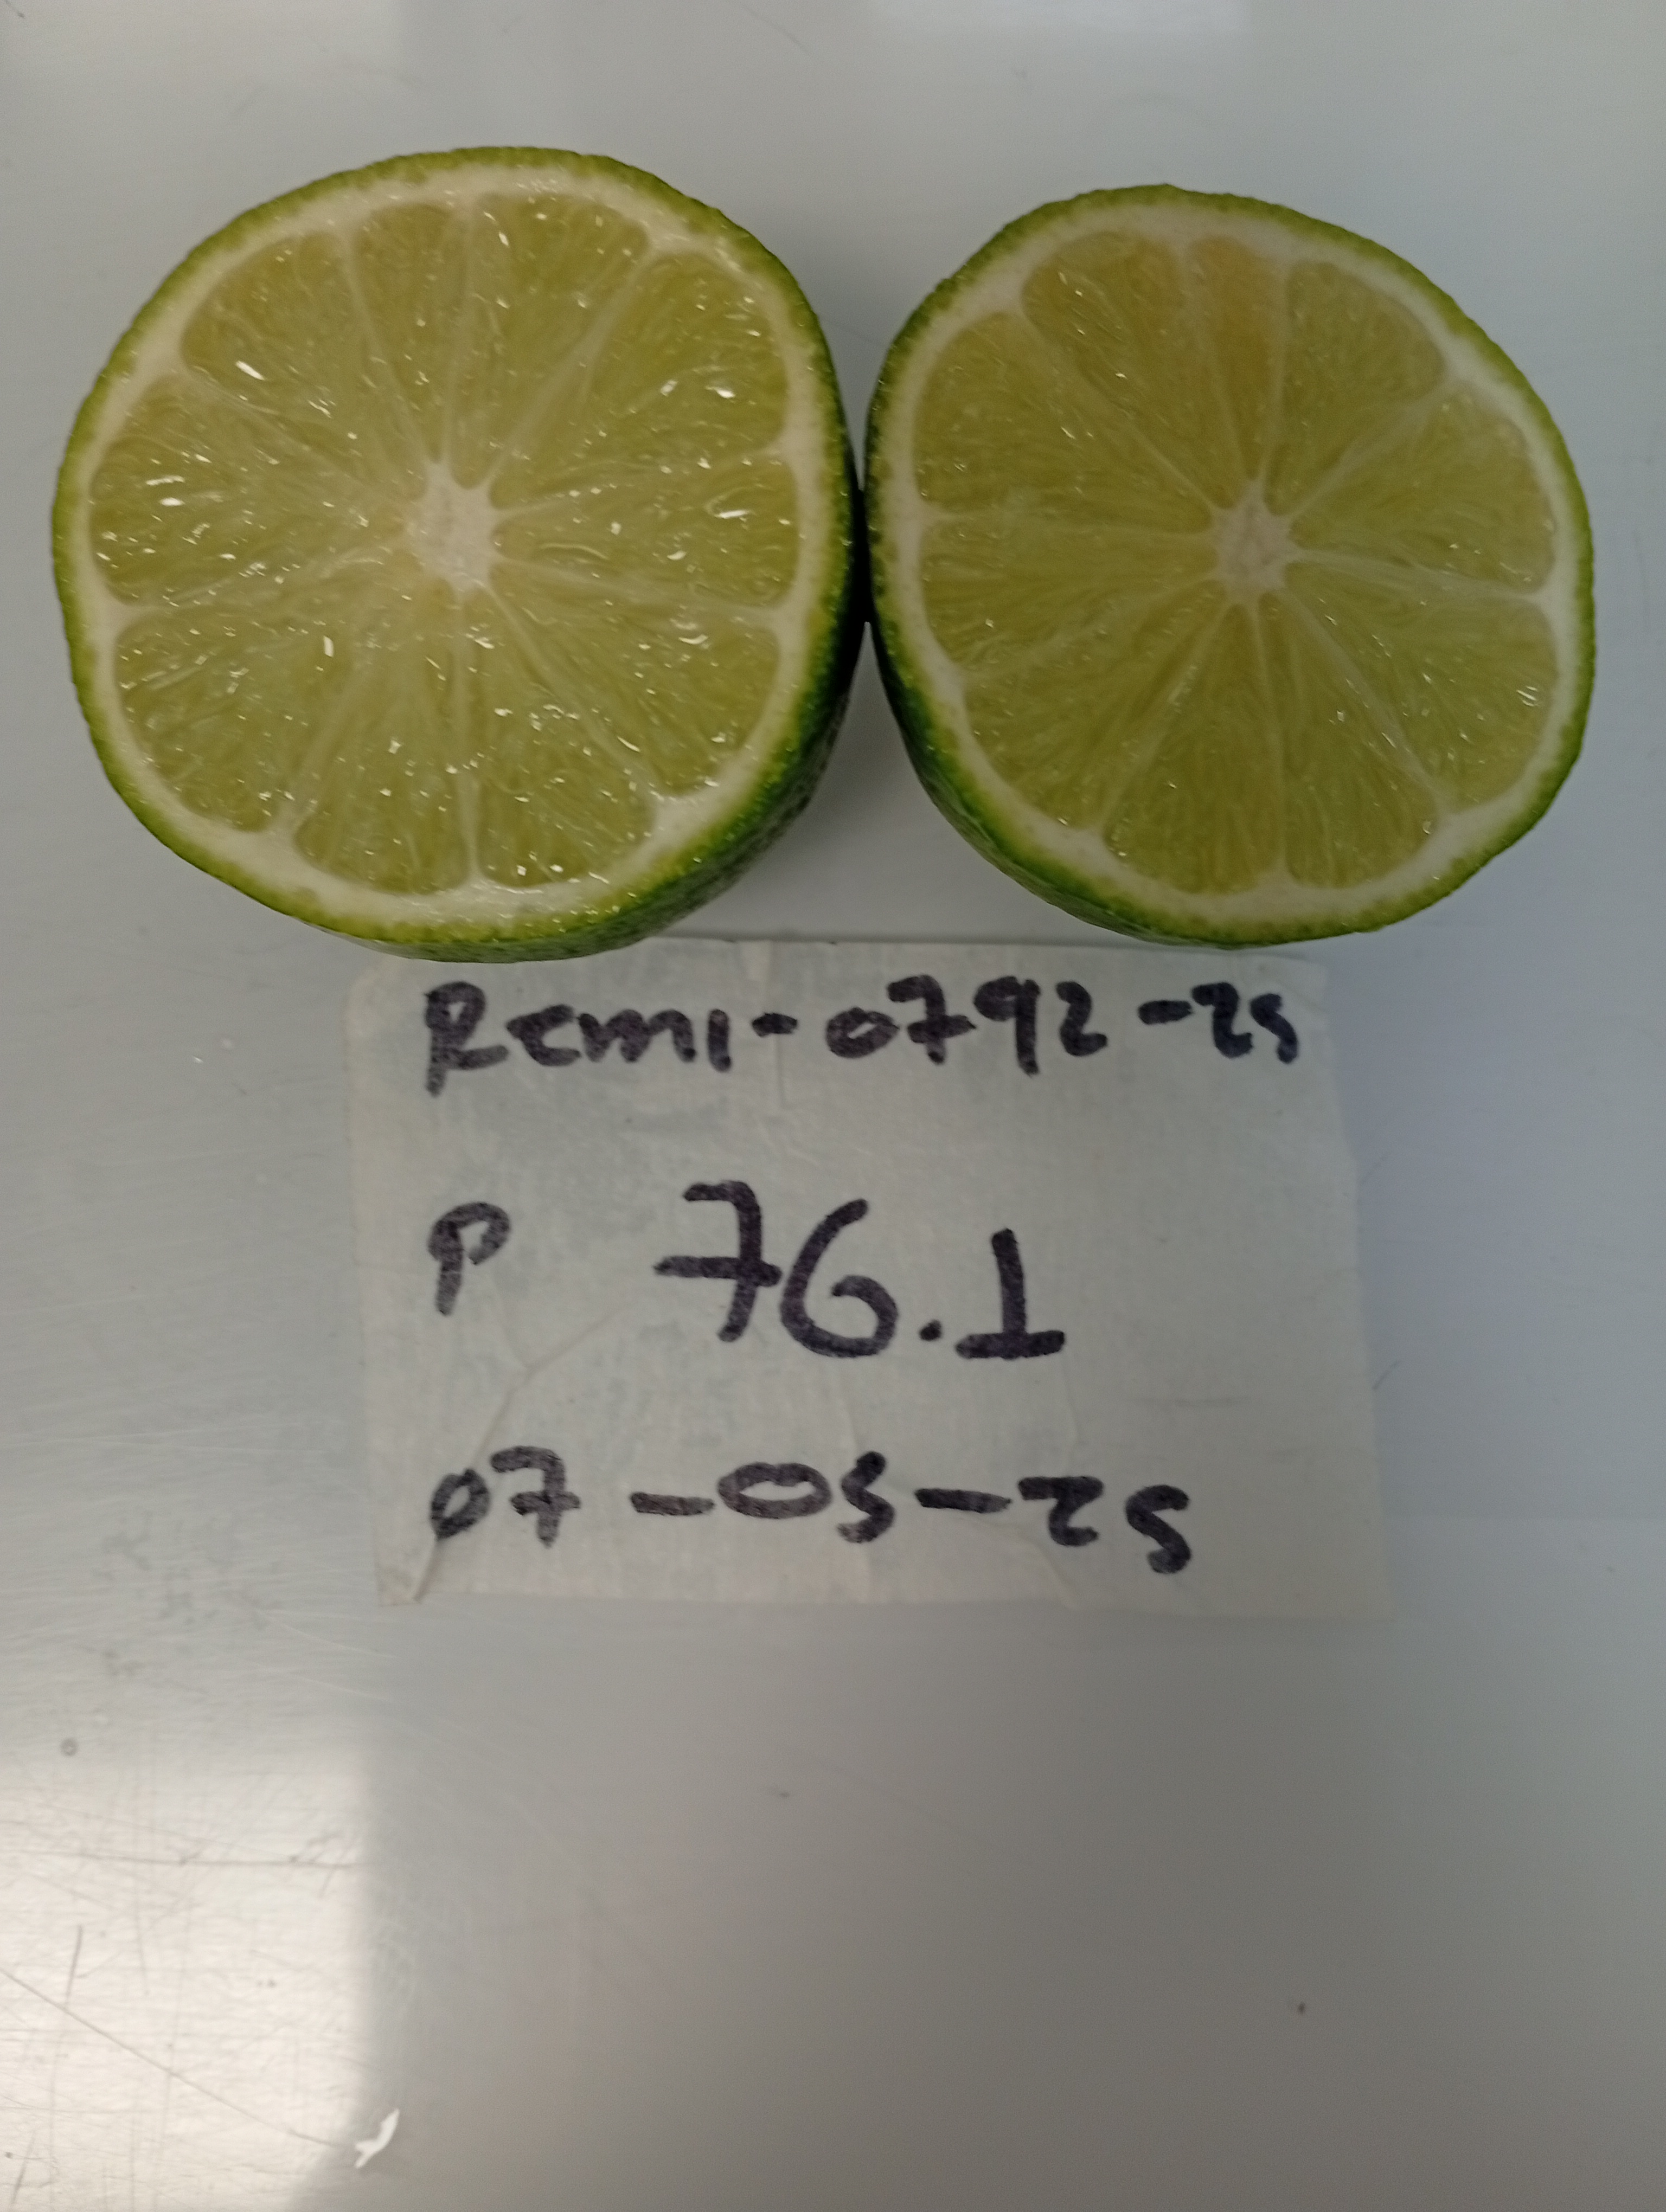 Remi-0792-25
P 76.1
07-05-25